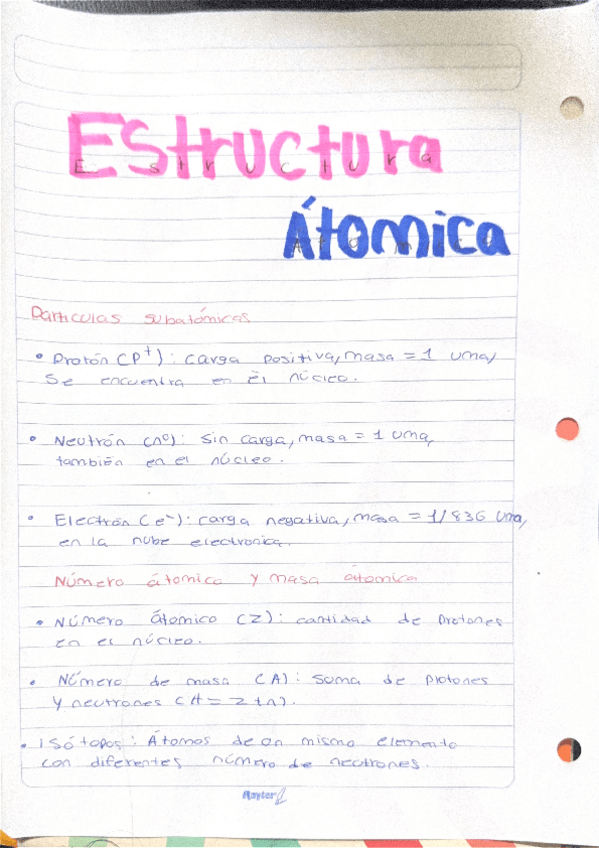 Estructura
Estructura
Átomica
Partículas subatómicas
• Protón (P⁺): carga positiva, masa = 1 uma,
se encuentra en el núcleo.
• Neutrón (n⁰): Sin carga, masa = 1 uma,
también en el núcleo.
• Electrón (e⁻): carga negativa, masa = 1/836 uma,
en la nube electronica.
Número átomico y masa átomica
• Número átomico (Z): cantidad de protones
en el núcleo.
• Número de masa (A): suma de protones
y neutrones (A = Z + n).
• Isótopos: Átomos de un mismo elemento
con diferentes número de neutrones.